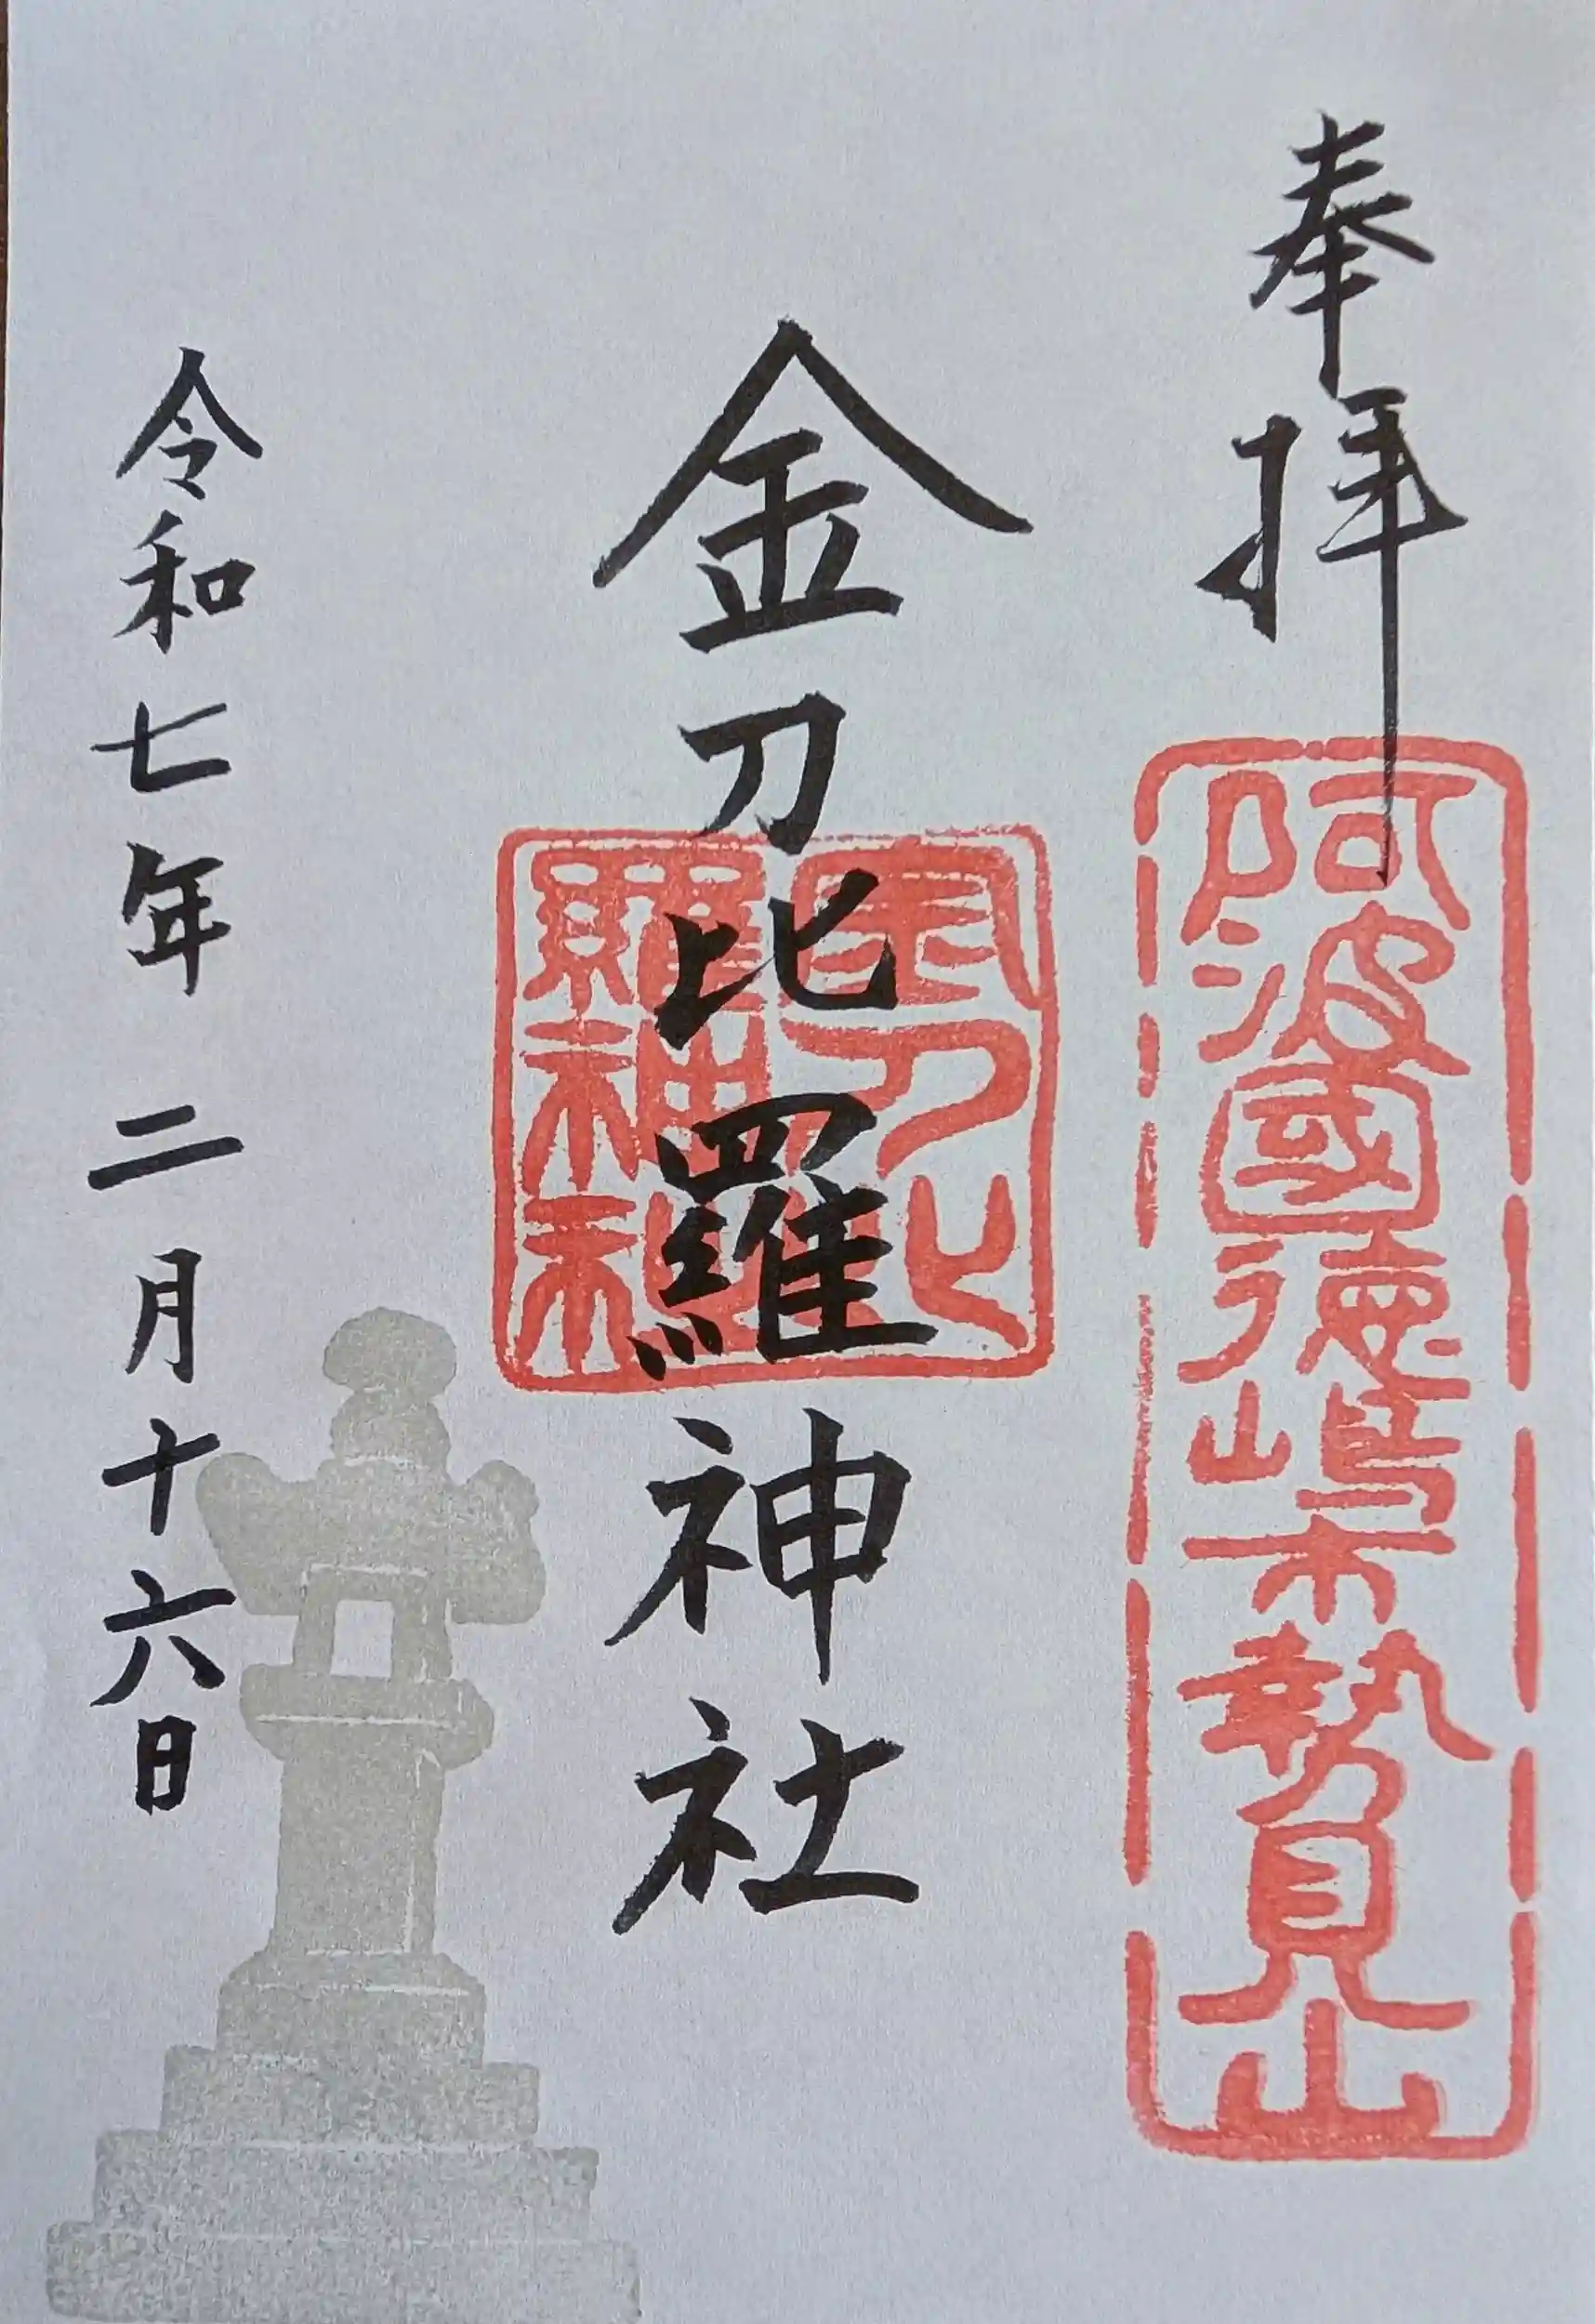 奉拝
阿波國徳嶋市勢見山
金刀比羅神社
金刀比
羅神社
令和七年二月十六日